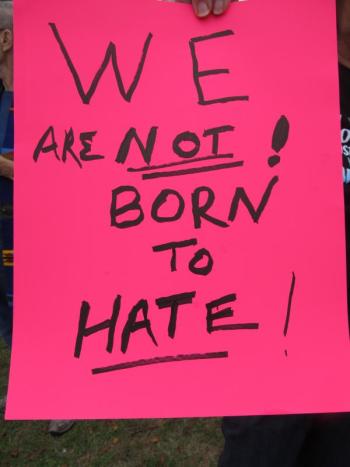 WE
ARE NOT!
BORN
TO
HATE!